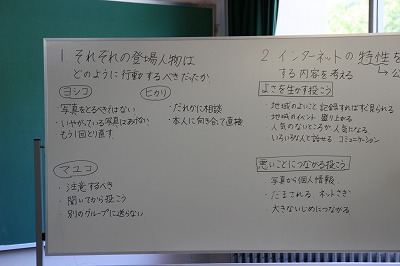 1 それぞれの登場人物は
どのように行動するべきだったか
ヨシコ
・写真をとるべきではない
・いやがっている写真はあげない
もう1回とり直す
ヒカリ
・だれかに相談
・本人に向き合って直接
マユコ
・注意するべき
・聞いてから投こう
・別のグループに送らない
2 インターネットの特性を
する内容を考える
よさを生かす投こう
・地域のよいこと 記録すればすぐ見られる
・地域のイベント 盛り上がる
・人気のないところが人気になる
・いろいろな人と話せる コミュニケーション
悪いことにつながる投こう
・写真から個人情報
・だまされる ネットさぎ
・大きないじめにつながる